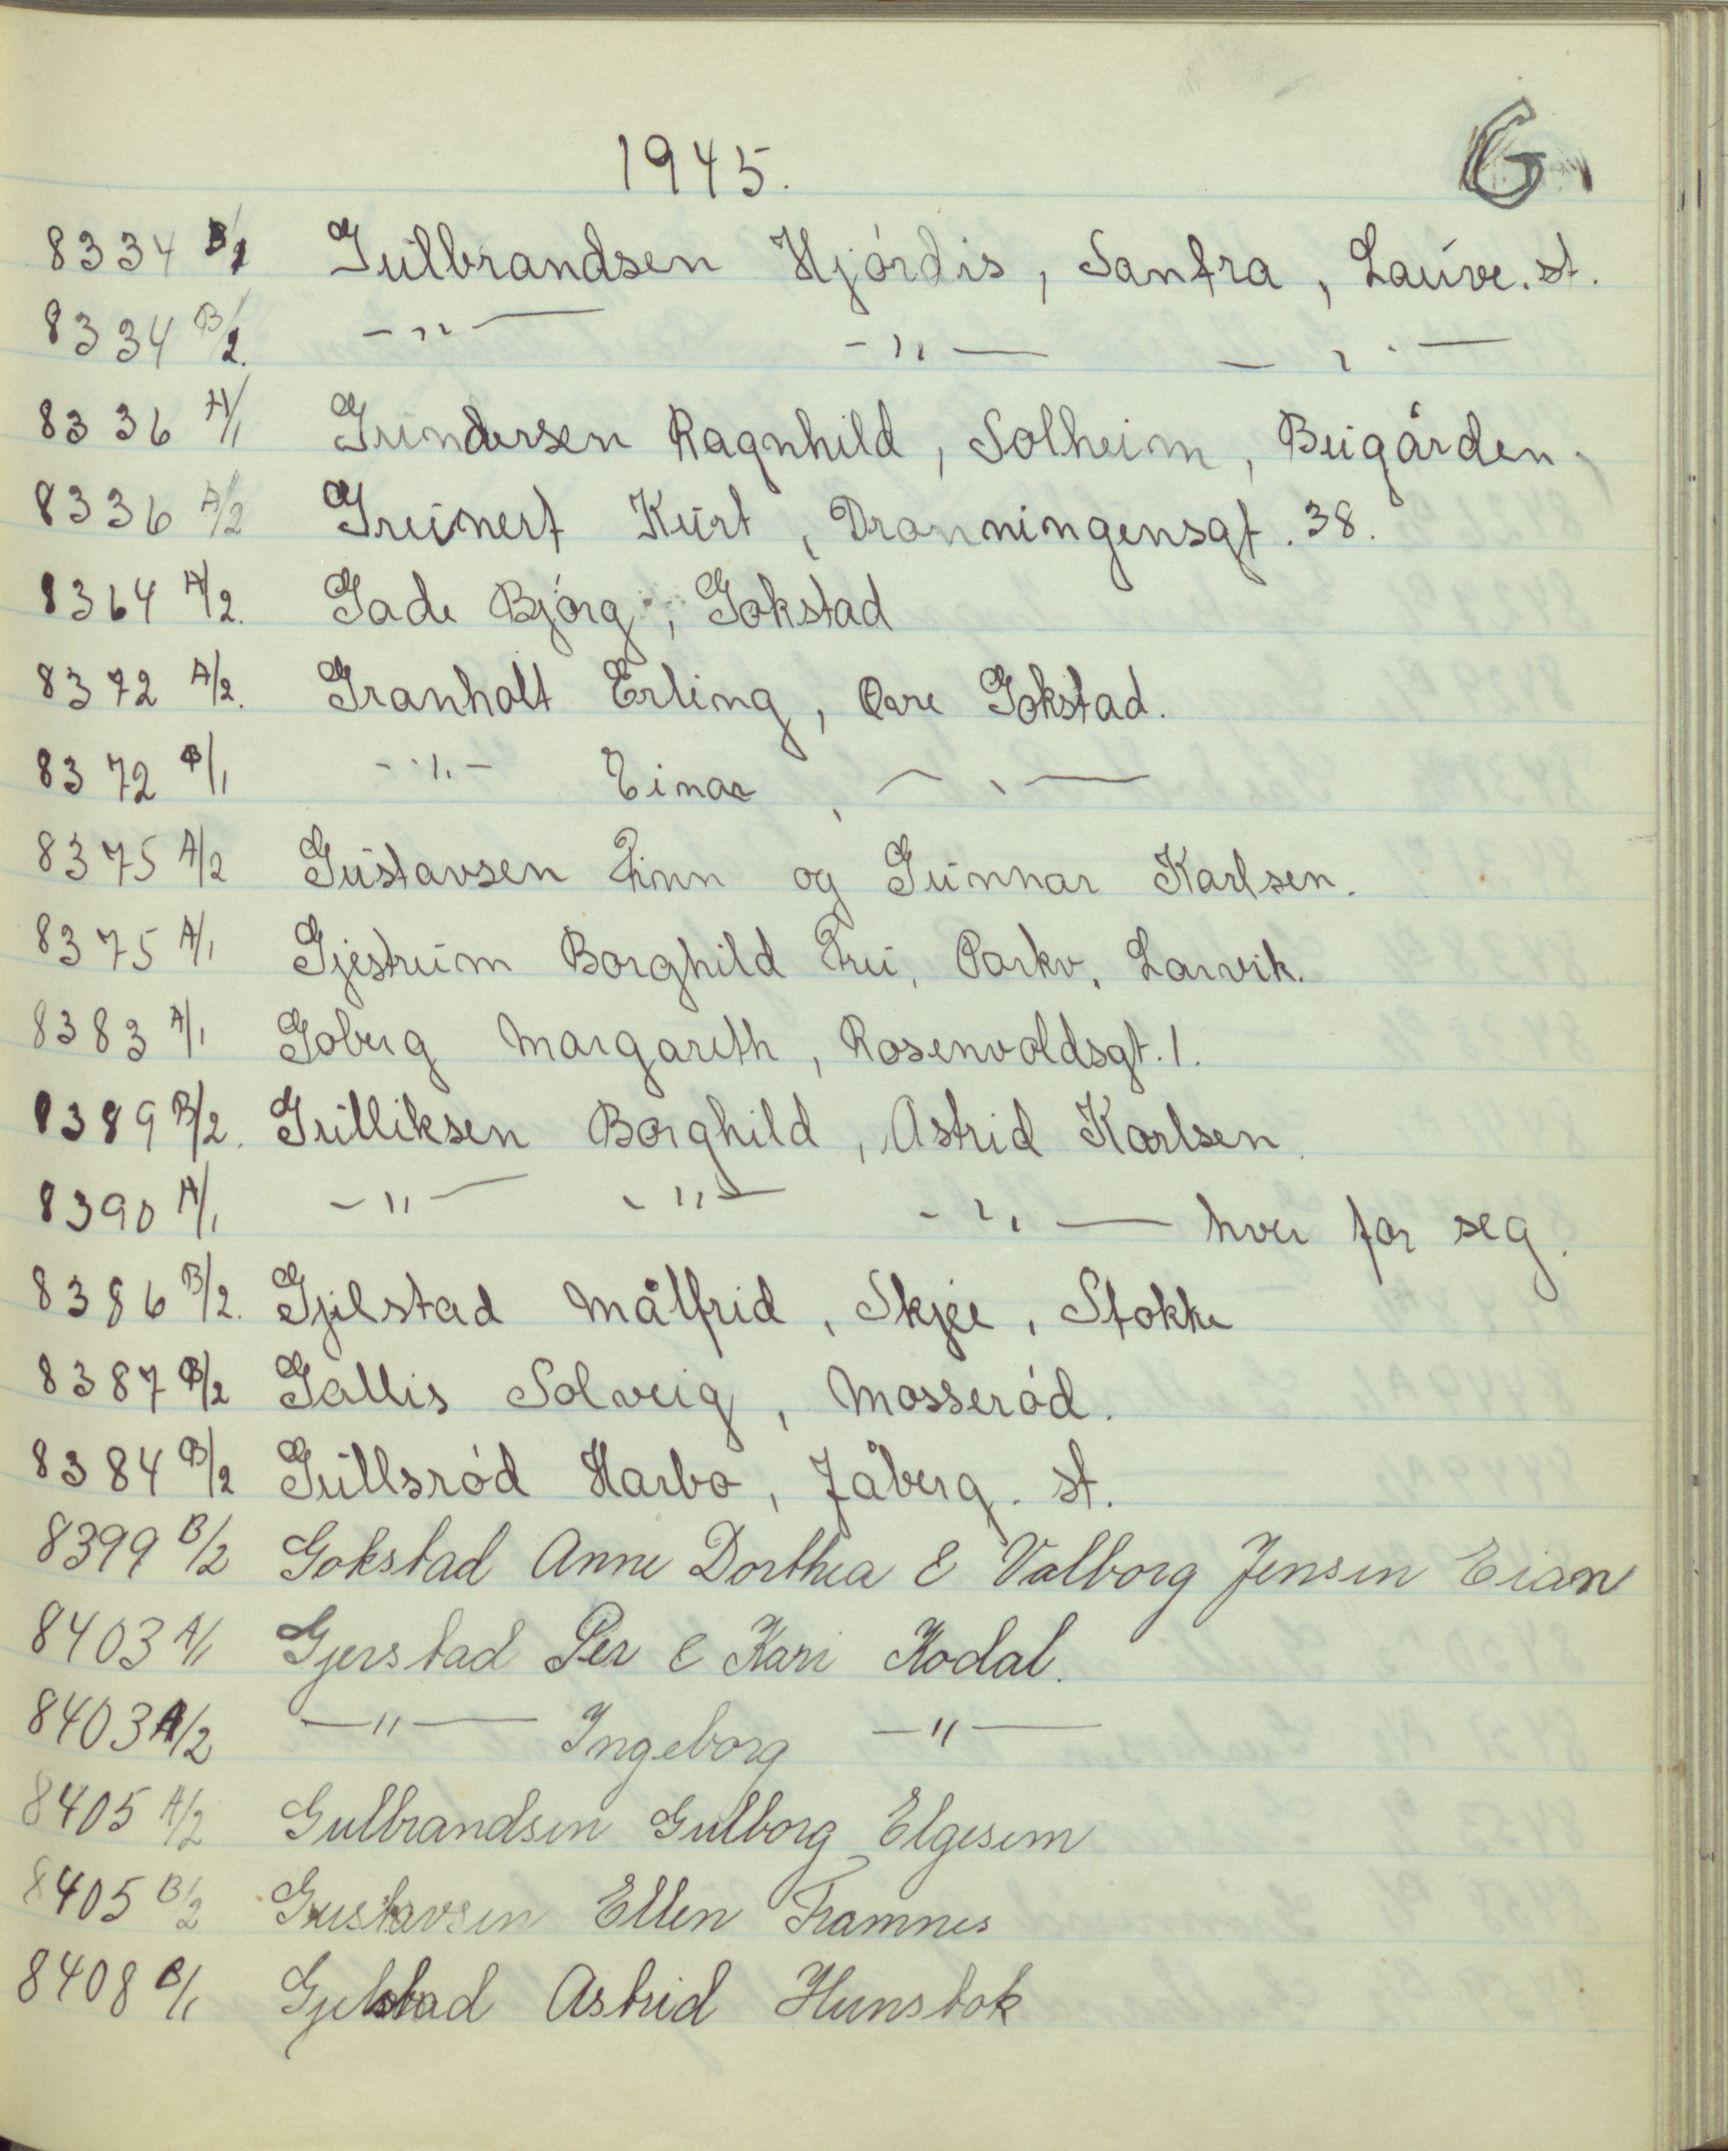 1945.
G
8334 B/1 Gulbrandsen Hjórdis, Sanfra, Lauve. st.
8334 B/2. -"- -"- -"-
8336 A/1 Gundersen Ragnhild, Solheim, Bugården
8336 A/2 Greinert Kurt, Dronningensgt. 38.
8364 A/2. Gade Bjórg, Gokstad
8372 A/2. Granholt Erling, Øvre Gokstad.
8372 B/1 -"- Einar, -"-
8375 A/2 Gustavsen Finn og Gunnar Karlsen.
8375 A/1 Gjestrum Borghild Fru, Parkv. Larvik.
8383 A/1 Goberg Margareth, Rosenvoldsgt. 1.
8389 B/2. Gulliksen Borghild, Astrid Karlsen.
8390 A/1 -"- -"- -"- hver for seg.
8386 B/2. Gjelstad Målfrid, Skjee, Stokke
8387 B/2 Gallis Solveig, Mosseród.
8384 B/2 Gullsród Harbo, Jåberg. st.
8399 B/2 Gokstad Anne Dorthea & Valborg Jensen Eian
8403 A/1 Gjerstad Per & Kari Kodal.
8403 A/2 -"- Ingeborg -"-
8405 A/2 Gulbrandsen Gulborg Elgesem
8405 B/2 Gustavsen Ellen Framnes
8408 B/1 Gjelstad Astrid Hunstok